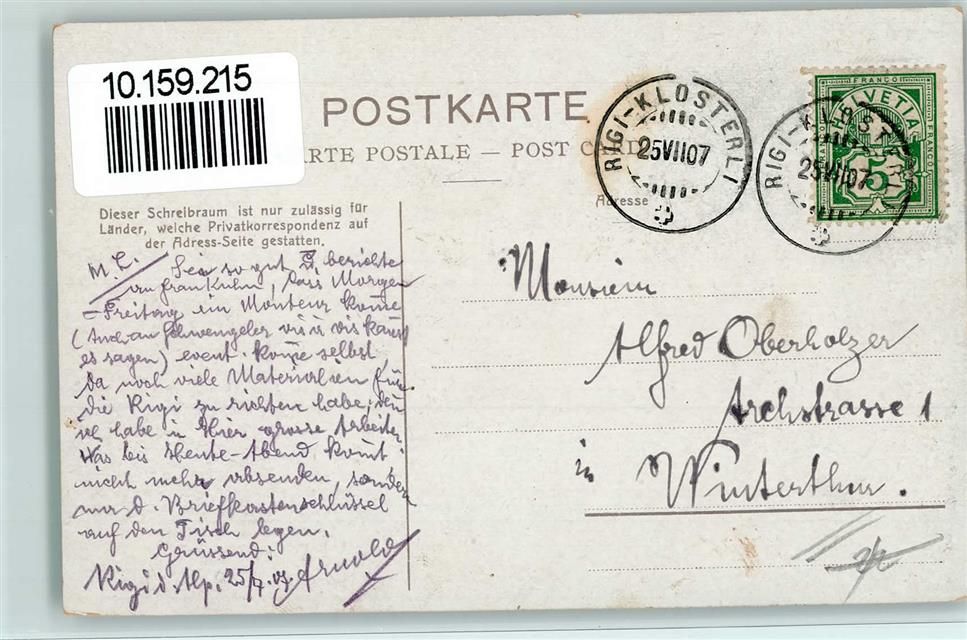 10.159.215
POSTKARTE
ARTE POSTALE — POST C
Adresse
RIGI-KLÖSTERLI
25 VII 07
RIGI-KLÖSTERLI
25 VII 07
FRANCO
HELVETIA
FRANCO
FRANCO
5
Dieser Schreibraum ist nur zulässig für
Länder, welche Privatkorrespondenz auf
der Adress-Seite gestatten.
M. L. Sei so gut & berichte
an Frau Kuhn, dass Morgen
-Freitag ein Monteur kome
(Auch an Schwengeler vis à vis kannst
es sagen) event. kome selbst,
da noch viele Materialien für
die Rigi zu richten habe,
habe in Hier grosse Arbeiten
Was bis Heute-Abend komt
nicht mehr absenden, sondern
nur d. Briefkastenschlüssel
auf den Tisch legen.
Grüssend:
Rigi d. Alp. 25/7. 07. Arnold
Monsieur
Alfred Oberholzer
Archstrasse 1
in Winterthur.